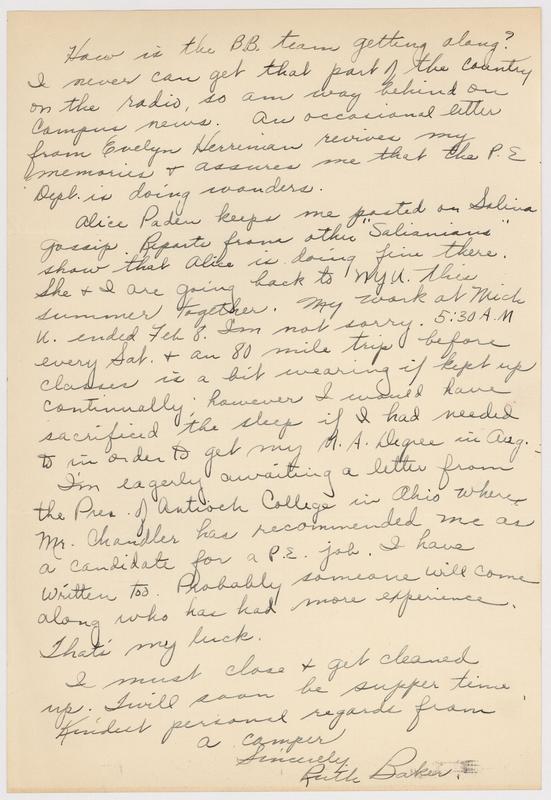 How is the B.B. team getting along?
I never can get that part of the country
on the radio, so am way behind on
Campus news. An occasional letter
from Evelyn Herriman revives my
memories & assures me that the P.E.
Dept. is doing wonders.
Alice Paden keeps me posted on Salina
gossip. Reports from other "Salinians"
show that Alice is doing fine there.
She & I are going back to N.Y.U. this
summer together. My work at Mich
U. ended Feb 8. I'm not sorry. 5:30 A.M
every Sat. & an 80 mile trip before
classes is a bit wearing if kept up
continually; however I would have
sacrificed the sleep if I had needed
to in order to get my M.A. Degree in Aug.
I'm eagerly awaiting a letter from
the Pres. of Antioch College in Ohio where
Mr. Chandler has recommended me as
a candidate for a P.E. job. I have
written too. Probably someone will come
along who has had more experience.
That's my luck.
I must close & get cleaned
up. Twill soon be supper time
Kindest personal regards from
a camper
Sincerely
Ruth Baker.